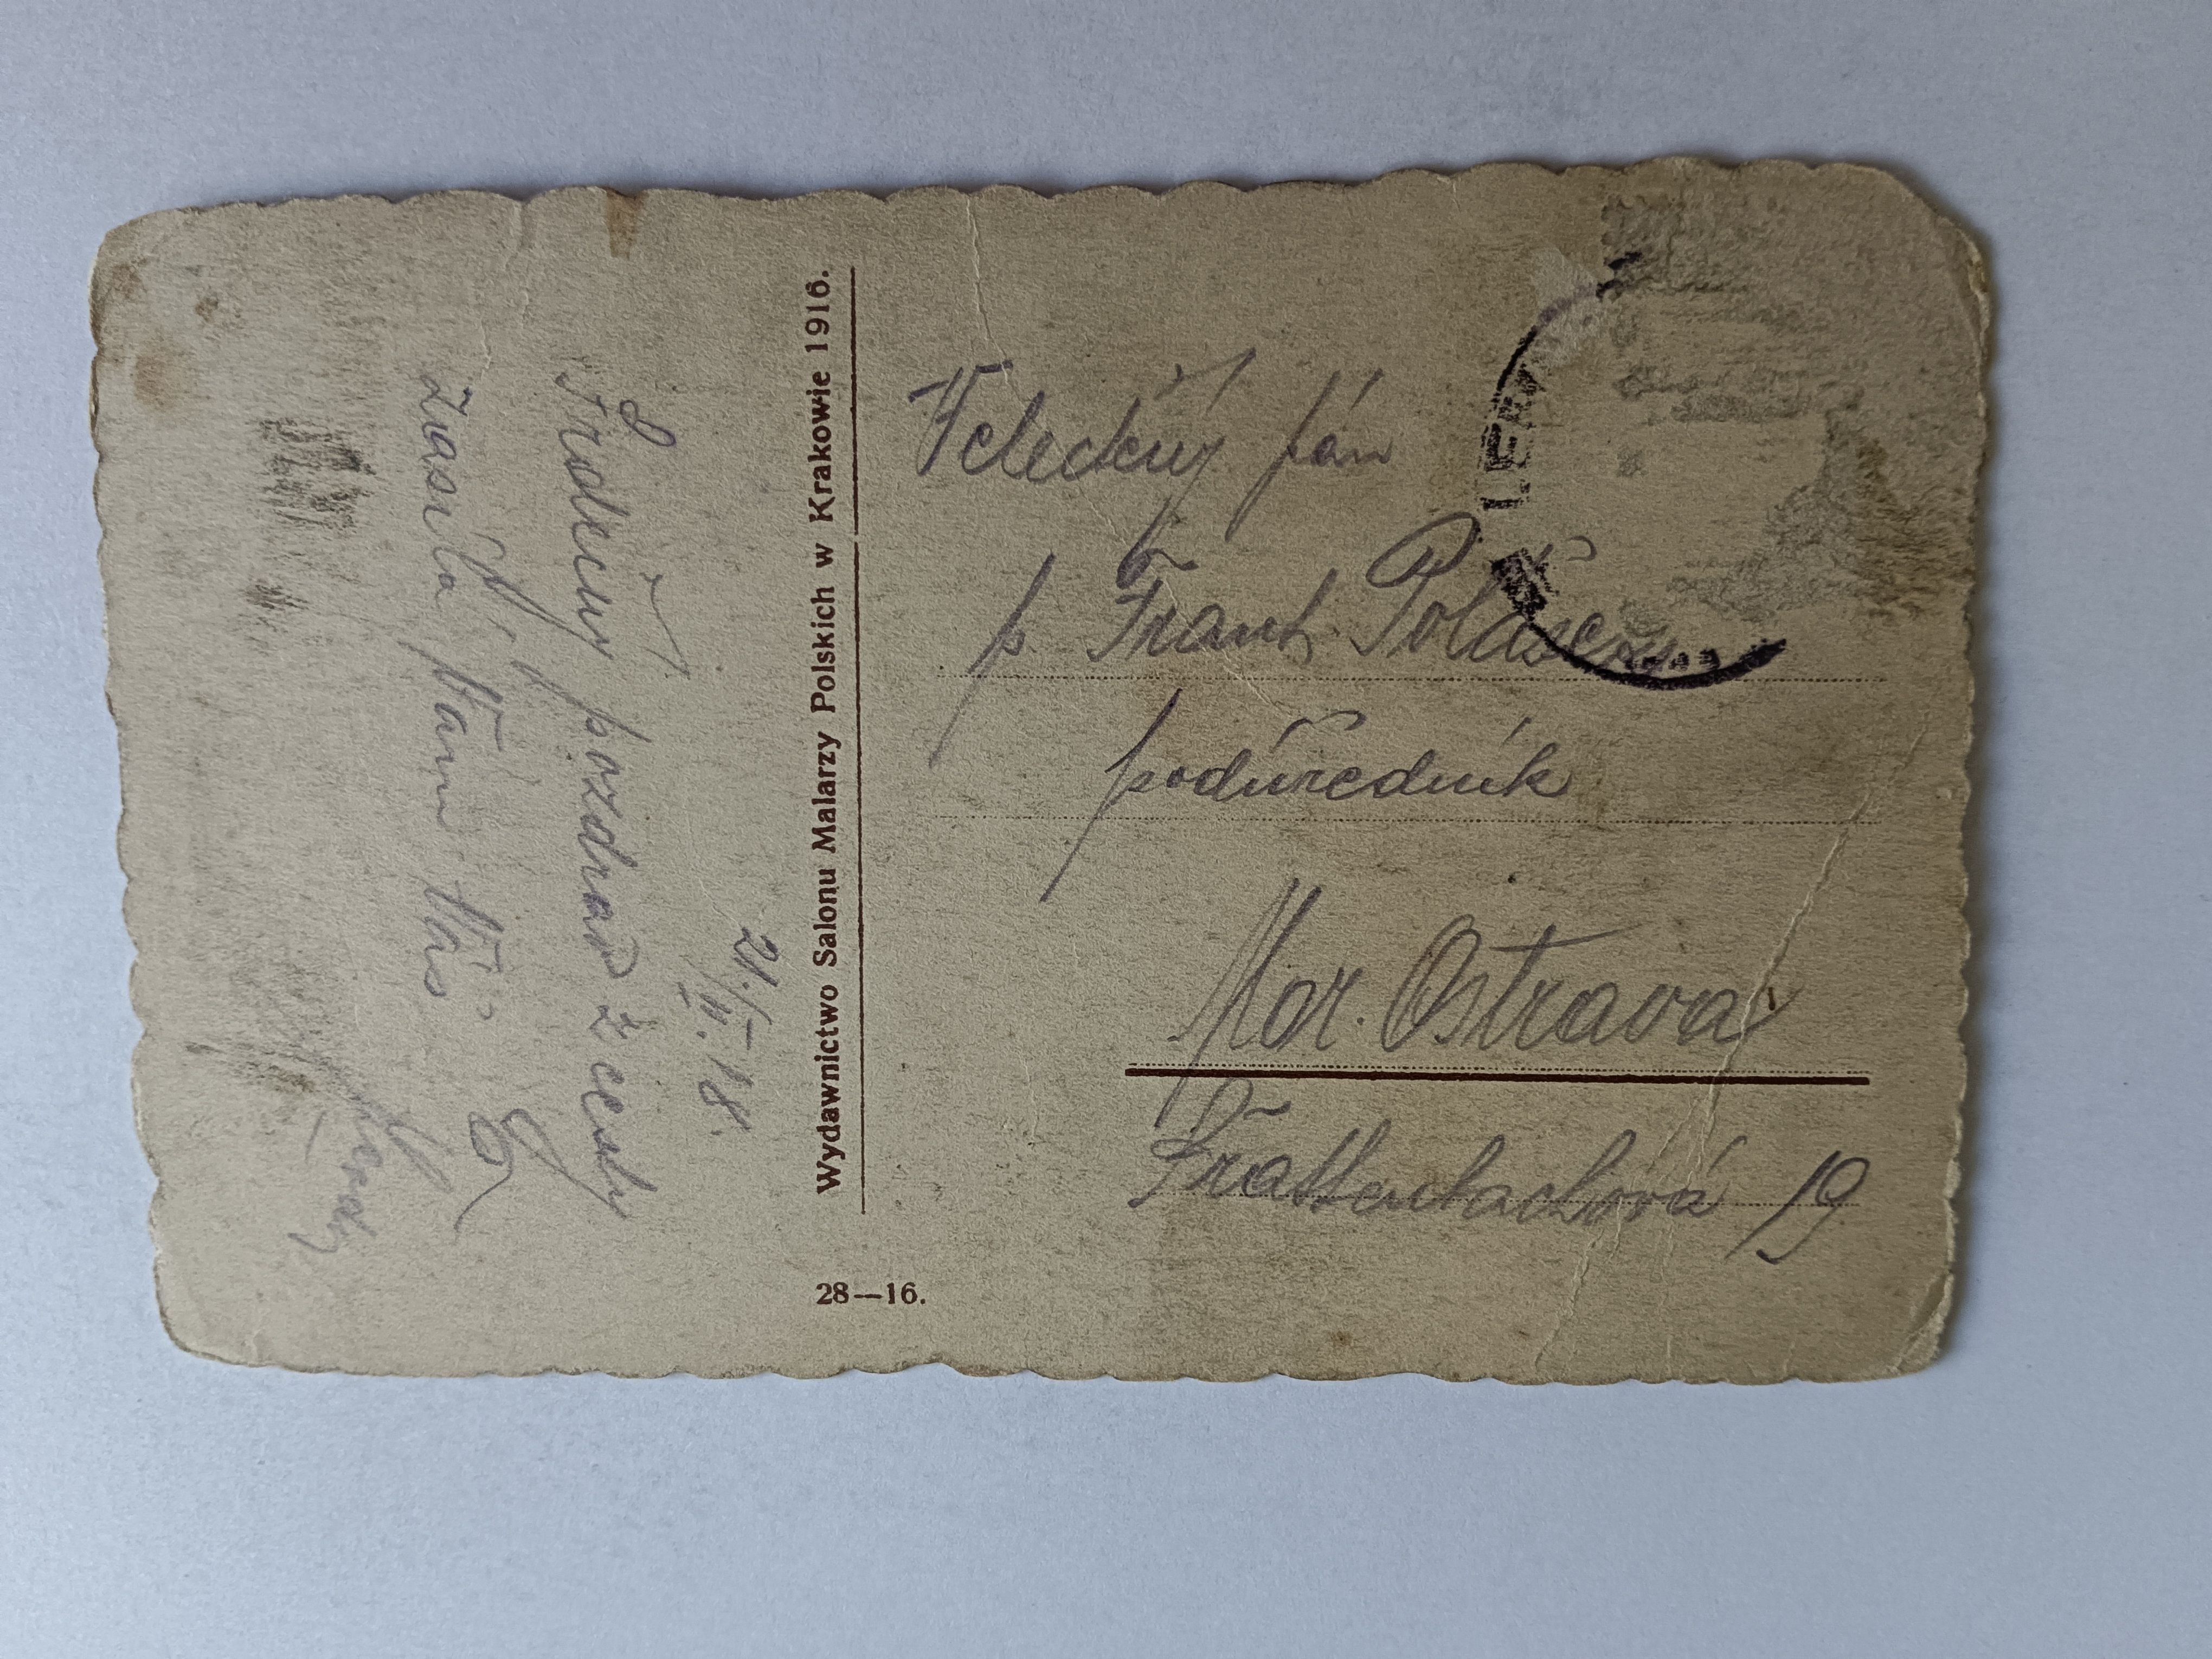 21./II. 18.
Srdečný pozdrav z cesty
zasílá Vám
Wydawnictwo Salonu Malarzy Polskich w Krakowie 1916.
28—16.
Velectěný pán
p. Frant. Polášek
podúředník
Mor. Ostrava
19